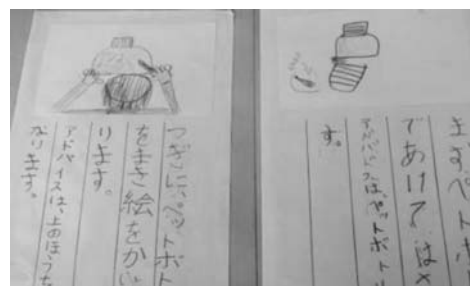 まずペットボ
であけて
アドバイスは、ペットボトル
す。
つぎに、ペットボト
をまき絵をかい
ります。
アドバイスは、上のほうち
なります。